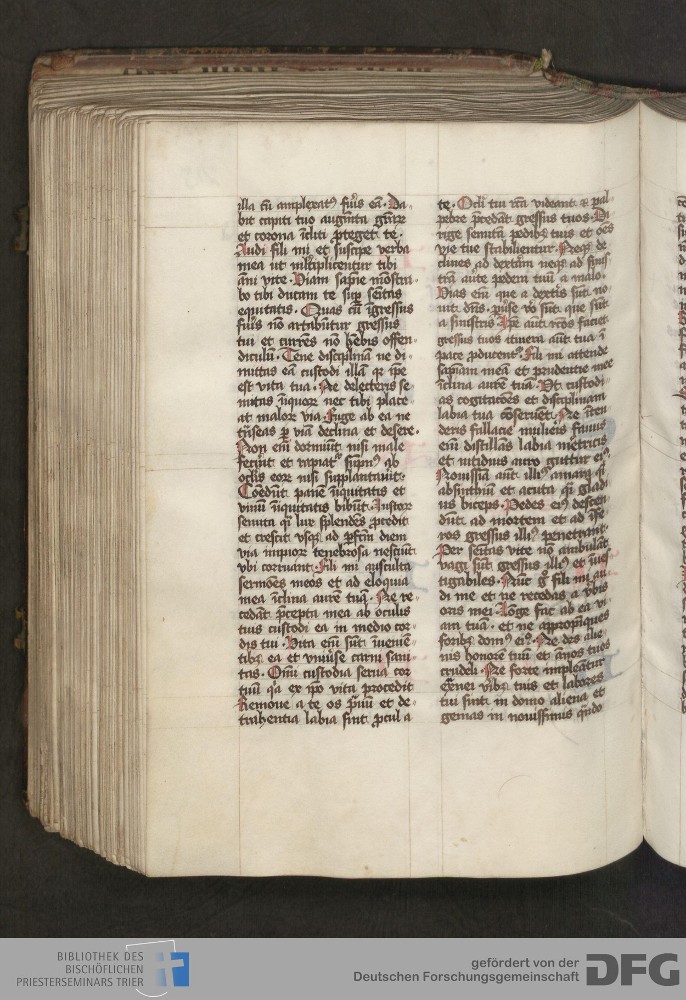 illa cū amplexatꝰ fūis eā. Da-
bit capiti tuo augmēta grārū
et corona īcliti ꝓteget te.
Audi fili mi et suscipe verba
mea ut multiplicentur tibi
āni vite. Viam sapīe mōstra-
bo tibi ducam te sup sētas
equitatis. Quas cū īgressus
fūis nō artabūtur gressus
tui et currēs nō hēbis offen-
diculū. Tene disciplinā ne di-
mittas eā custodi illā qꝛ ip̄e
est vita tua. Ne delecteris se-
mitas īiquoꝝ nec tibi place-
at maloꝝ via. Fuge ab ea ne
trāseas p̱ viā declina et desere.
Non em̄ dormiūt nisi male
fecīnt et rapiatᷣ sūpnꝰ ab
oclis eoꝝ nisi supplantauīt.
Comedūt panē īiquitatis et
vinū īiquitatis bibūt. Iustoꝝ
semita qī lux splendēs ꝓcedit
et crescit vsqꝫ ad pfctm diem
via impioꝝ tenebrosa nesciūt
vbi corruant. Fili mi ausculta
sermōes meos et ad eloquia
mea īclina aurē tuā. Ne re-
cedāt p̄cepta mea ab oculis
tuis custodi ea in medio cor-
dis tui. Vita em̄ sūt īueniē-
tibꝫ ea et vniuīse carni sani-
tas. Omī custodia serua cor
tuū qꝛ ex ipo vita procedit
Remoue a te os p̄uū et de-
trahentia labia sint ꝓcul a
te. Oclī tui rc̄a videant ⁊ pal-
pebre p̄cedāt gressus tuos. Di-
rige semitā pedibꝫ tuis et oēs
vie tue stabilientur. Neqꝫ de-
clines ad dextām neqꝫ ad sinis-
trā aūte pedem tuū a malo.
Vias em̄ que a dextīs sūt no-
uit dn̄s. ꝑūse vo sūt que sūt
a sinistris. Ip̄e aūt rc̄os faciet
gressus tuos itinera aūt tua ī
pace ꝓducentᷣ. Fili mi attende
sapīam meā et prudentie mee
īclina aurē tuā. Vt custodi-
as cogitacōes et disciplinam
labia tua cōseruēt. Ne īten-
deris fallacie mulieīs fauus
em̄ distillās labia metricis
et nitidius auro guttur eiꝰ.
Nouissia aūt illiꝰ amara qī
absinthiū et acuta qī gladi-
us biceps. Pedes eiꝰ descen-
dūt ad mortem et ad īfe-
ros gressus illiꝰ penetrant.
Per sētas vite nō ambulāt
vagi sūt gressus illiꝰ et īues-
tigabiles. Nūc gͦ fili mi au-
di me et ne recedas a vbis
oris mei. Lōge fac ab ea vi-
am tuā. et ne appropīques
foribꝫ domꝰ eiꝰ. Ne des alie-
nis honorē tuū et ānos tuos
crudeli. Ne forte impleātur
ext̄nei vībꝫ tuis et labores
tui sint in domo aliena et
gemas in nouissimis qn̄do
BIBLIOTHEK DES
BISCHÖFLICHEN
PRIESTERSEMINARS TRIER
gefördert von der
Deutschen Forschungsgemeinschaft
DFG